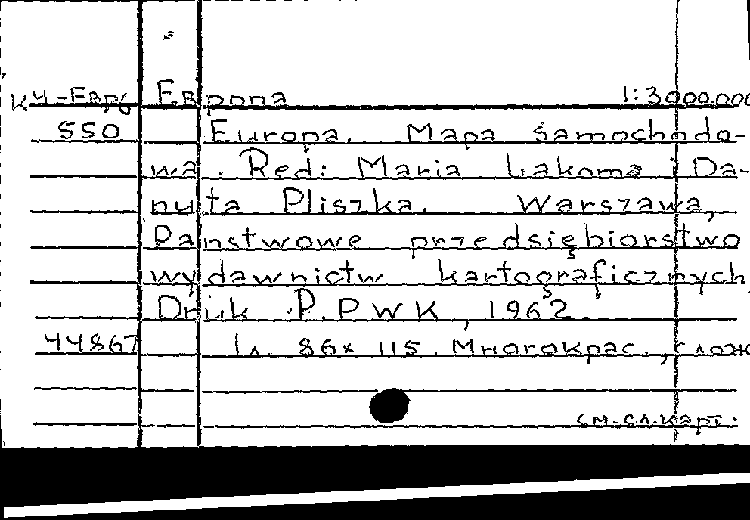 К4-Евр6 Европа 1:3000.000
550 Europa. Mapa samochodo-
wa. Red: Maria Lakoma i Da-
nuta Pliszka. Warszawa,
Panstwowe przedsiębiorstwo
wydawnictw kartograficznych
Druk P.P.W.K, 1962.
44867 1л. 86x115. Многокрас., слож
см.сл.карт.